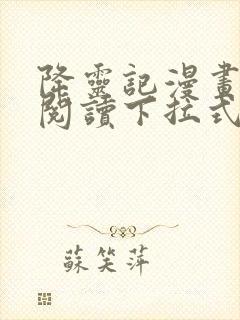 降靈記漫畫
閱讀下拉式
蘇笑萍